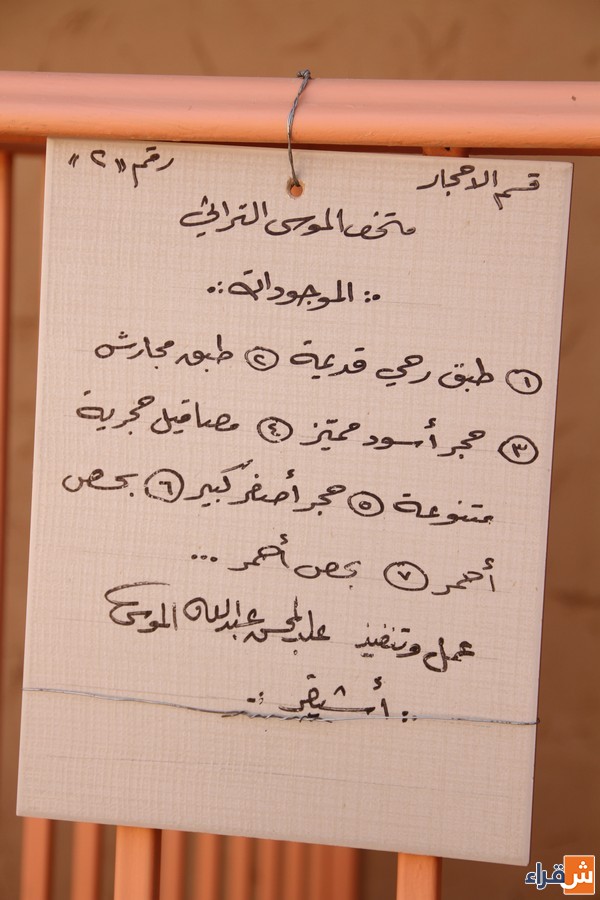 قسم الاحجار رقم «٢»
متحف الموسى التراثي
.: الموجودات :.
١ طبق رحى قديمة ٢ طبق مجارش
٣ حجر أسود مميّز ٤ مصاقيل حجرية
متنوعة ٥ حجر أصفر كبير ٦ بحص
أحمر ٧ بحص أحمر ...
عمل وتنفيذ عبدالمحسن عبدالله الموسى
.: أشيقر :.
شقراء